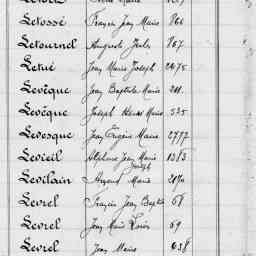 Letossé François Jean Marie 860
Letournel Auguste Jules 867
Letué Jean Marie Joseph 2475
Levêque Jean Baptiste Marie 211
Levêque Joseph Marie 535
Levesque Jean Eugène Marie 2777
Levieil Alphonse Jean Marie 1383
Joseph
Levilain Armand Marie 2170
Levrel François Jean Baptiste 68
Levrel Jean Marie Louis 69
Levrel Jean Marie 638